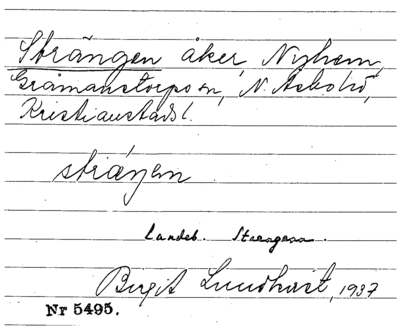 Strängen åker, Nyhem,
Gråmanstorps sn, N. Åsbo hd,
Kristianstads l.
strä́ŋen
Landeb.
Birgit Lundkvist, 1937
Nr 5495.